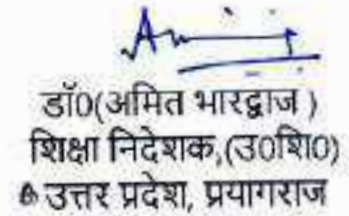 डॉ0(अमित भारद्वाज )
शिक्षा निदेशक,(उ0शि0)
उत्तर प्रदेश, प्रयागराज